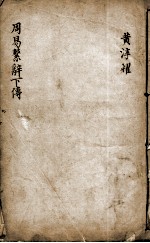 黄淳耀
周易繫辭下傳